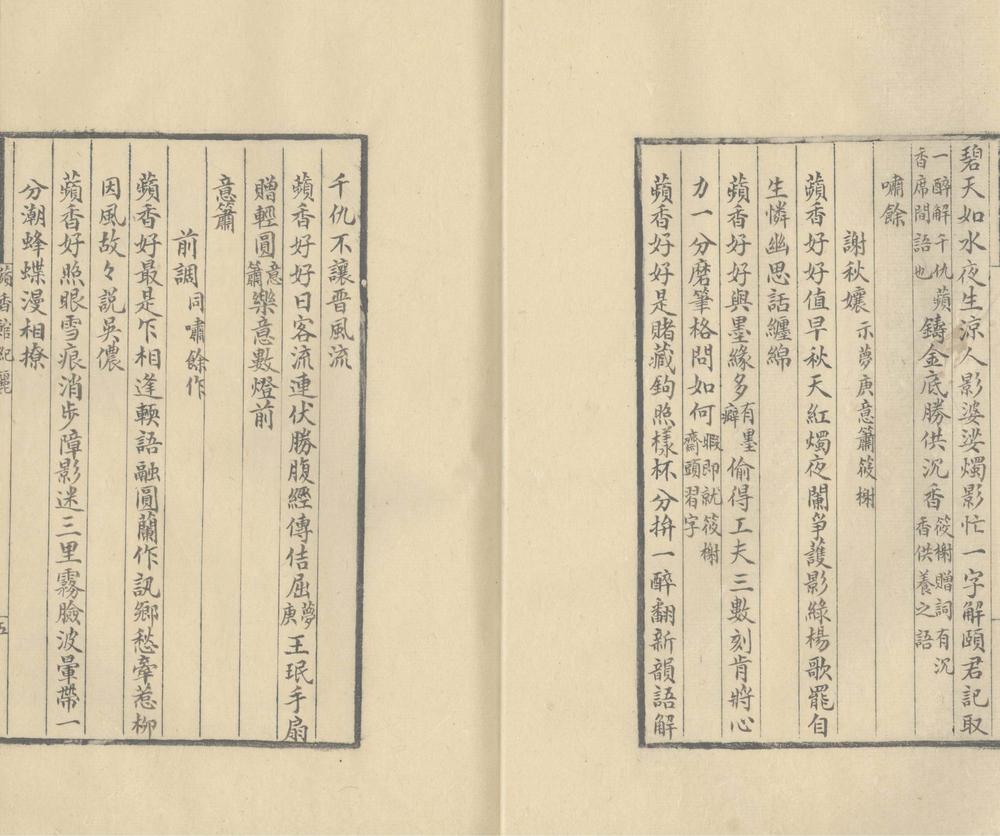 碧天如水夜生涼人影婆娑燭影忙一字解頤君記取
一醉解千仇蘋香席間語也
鑄金底勝供沉香
筱榭贈詞有沉香供養之語
嘯餘
謝秋孃示夢庚意簫筱榭
蘋香好好值早秋天紅燭夜闌爭護影綠楊歌罷自
生憐幽思話纏綿
蘋香好好與墨緣多有墨癖偷得工夫三數刻肯將心
力一分磨筆格問如何暇即就筱榭齋頭習字
蘋香好好是賭藏鉤照樣杯分拚一醉翻新韻語解
千仇不讓晋風流
蘋香好好日客流連伏勝腹經傳佶屈夢庚王珉手扇
贈輕圓意簫樂意數燈前
意簫
前調同嘯餘作
蘋香好最是乍相逢輭語融圓蘭作訊鄉愁牽惹柳
因風故々說吳儂
蘋香好照眼雪痕消步障影迷三里霧臉波暈帶一
分潮蜂蝶漫相撩
蘋香館紀麗
五